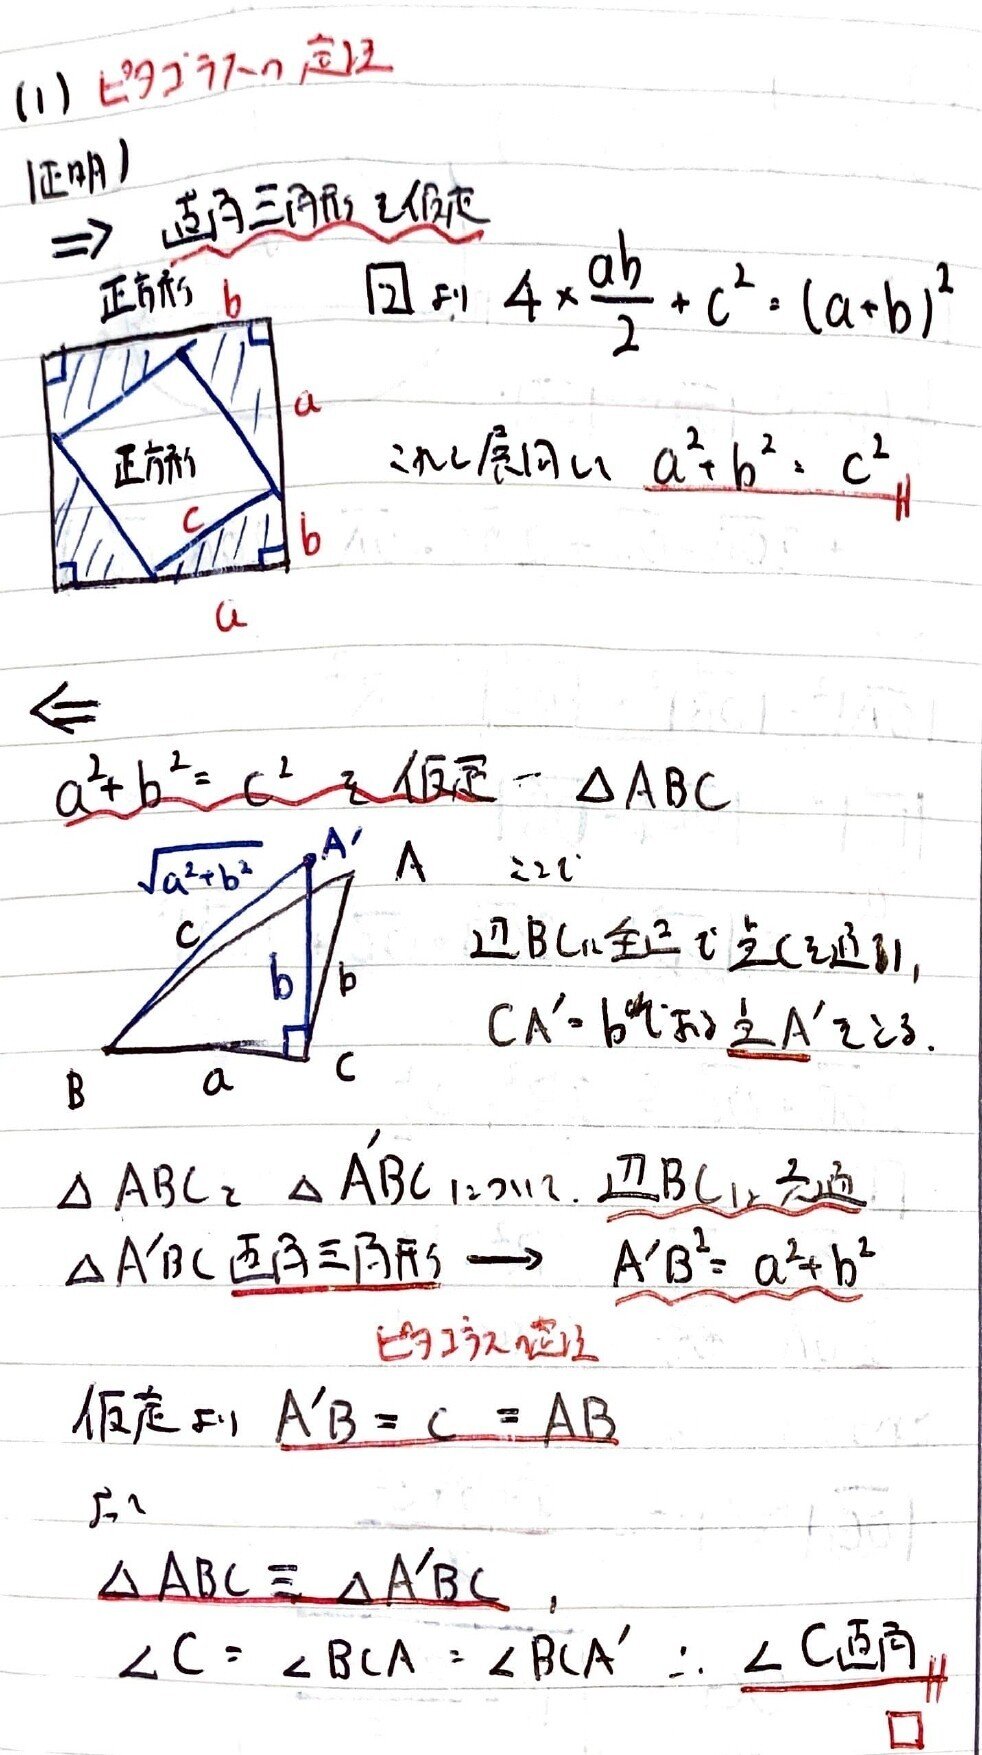 (1) ピタゴラスの定理
証明)
⇒ 直角三角形を仮定
正方形 b
図より 4×ab/2+c²=(a+b)²
a
正方形
これを展開して a²+b²=c²
c
b
a
⇐
a²+b²=c² を仮定 - △ABC
√a²+b² A′ A ここで
c
辺BCに垂直で点Cを通り,
b b
CA′=bである点A′をとる.
B a C
△ABCと △A′BCについて. 辺BCは共通
△A′BC直角三角形 → A′B²=a²+b²
ピタゴラスの定理
仮定より A′B=c=AB
よって
△ABC≡△A′BC,
∠C=∠BCA=∠BCA′ ∴ ∠C直角